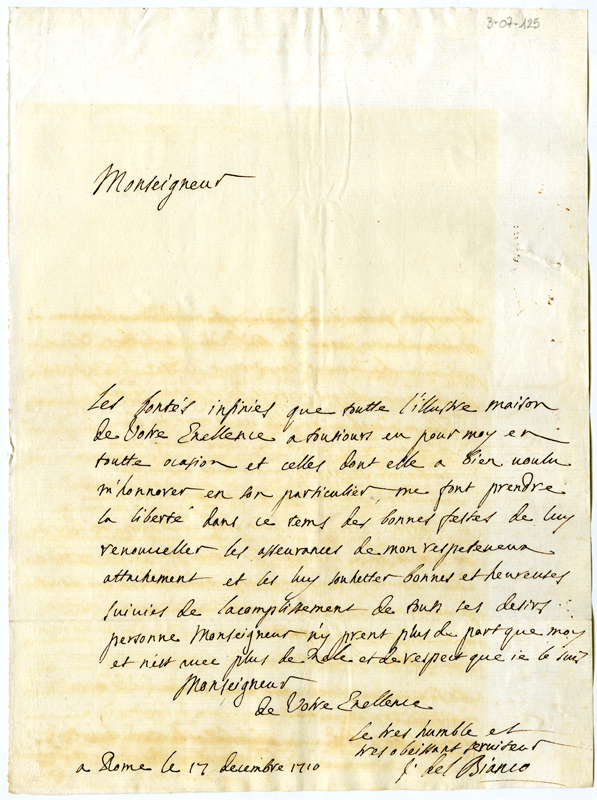 3-07-125
Monseigneur
Les bontés infinies que toutte l'illustre maison
de Votre Exellence a tousiours eu pour moy en
toutte ocasion et celles dont elle a bien voulu
m'honnorer en son particulier, me font prendre
la liberté dans ce tems des bonnes festes de luy
renouveller les asseurances de mon respetueux
attachement et les luy souhetter bonnes et heureuses
suivies de lacomplissement de touts ses desirs
personne Monseigneur n'y prent plus de part que moy
et n'est avec plus de Zele et de respect que ie le suis
Monseigneur
de Votre Exellence
Le tres humble et
tres obeissant serviteur
del Bianco
a Rome le 17 decembre 1710